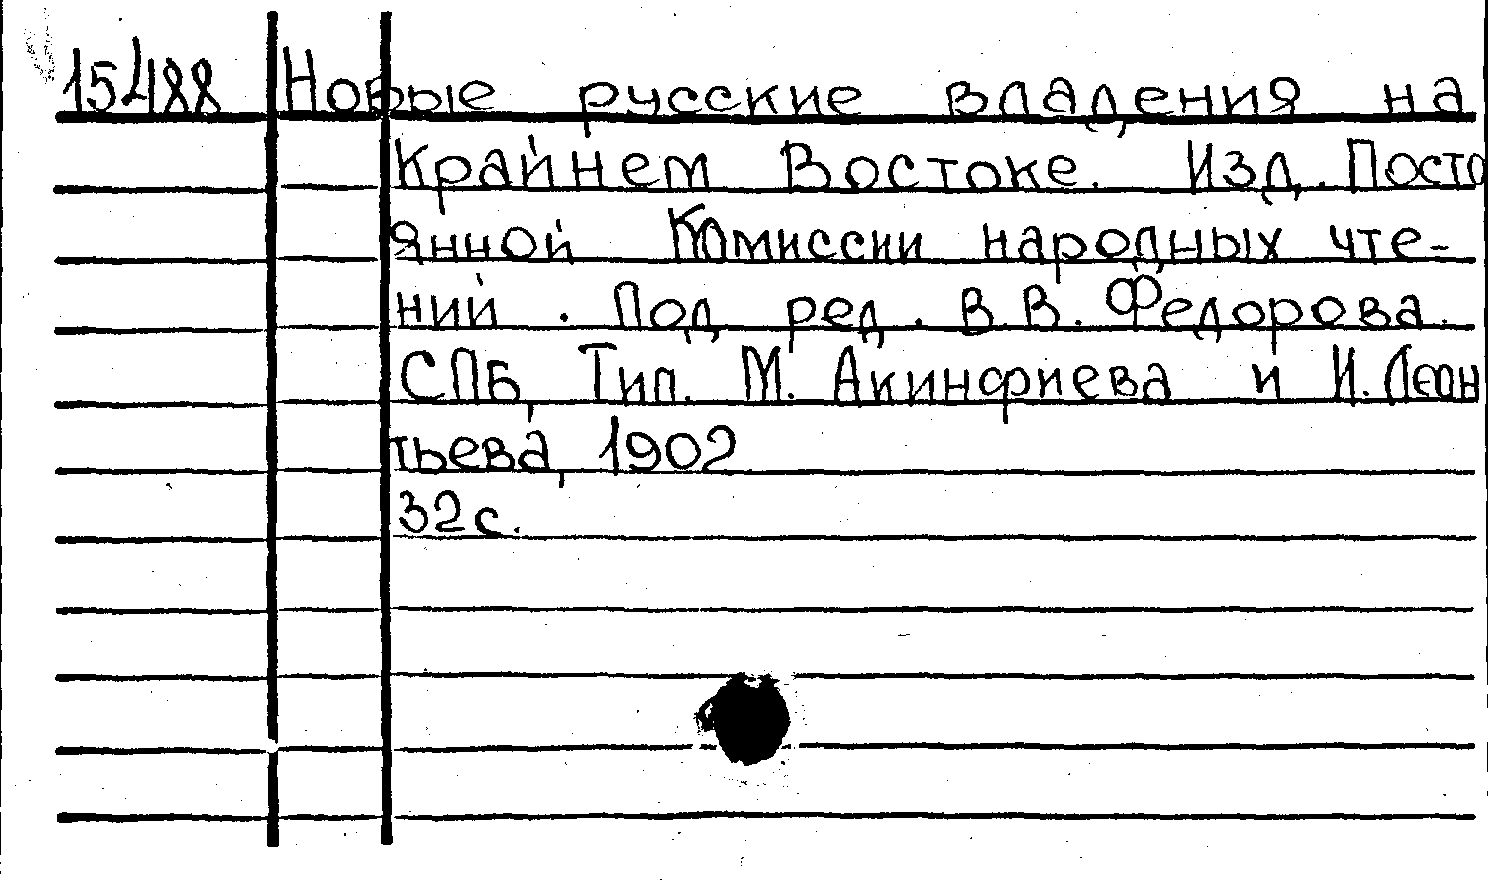 15488 Новые русские владения на
Крайнем Востоке. Изд. Посто
янной Комиссии народных чте-
ний. Под ред. В.В. Федорова.
СПБ, Тип. М. Акинфиева и И. Леон
тьева, 1902
32 с.